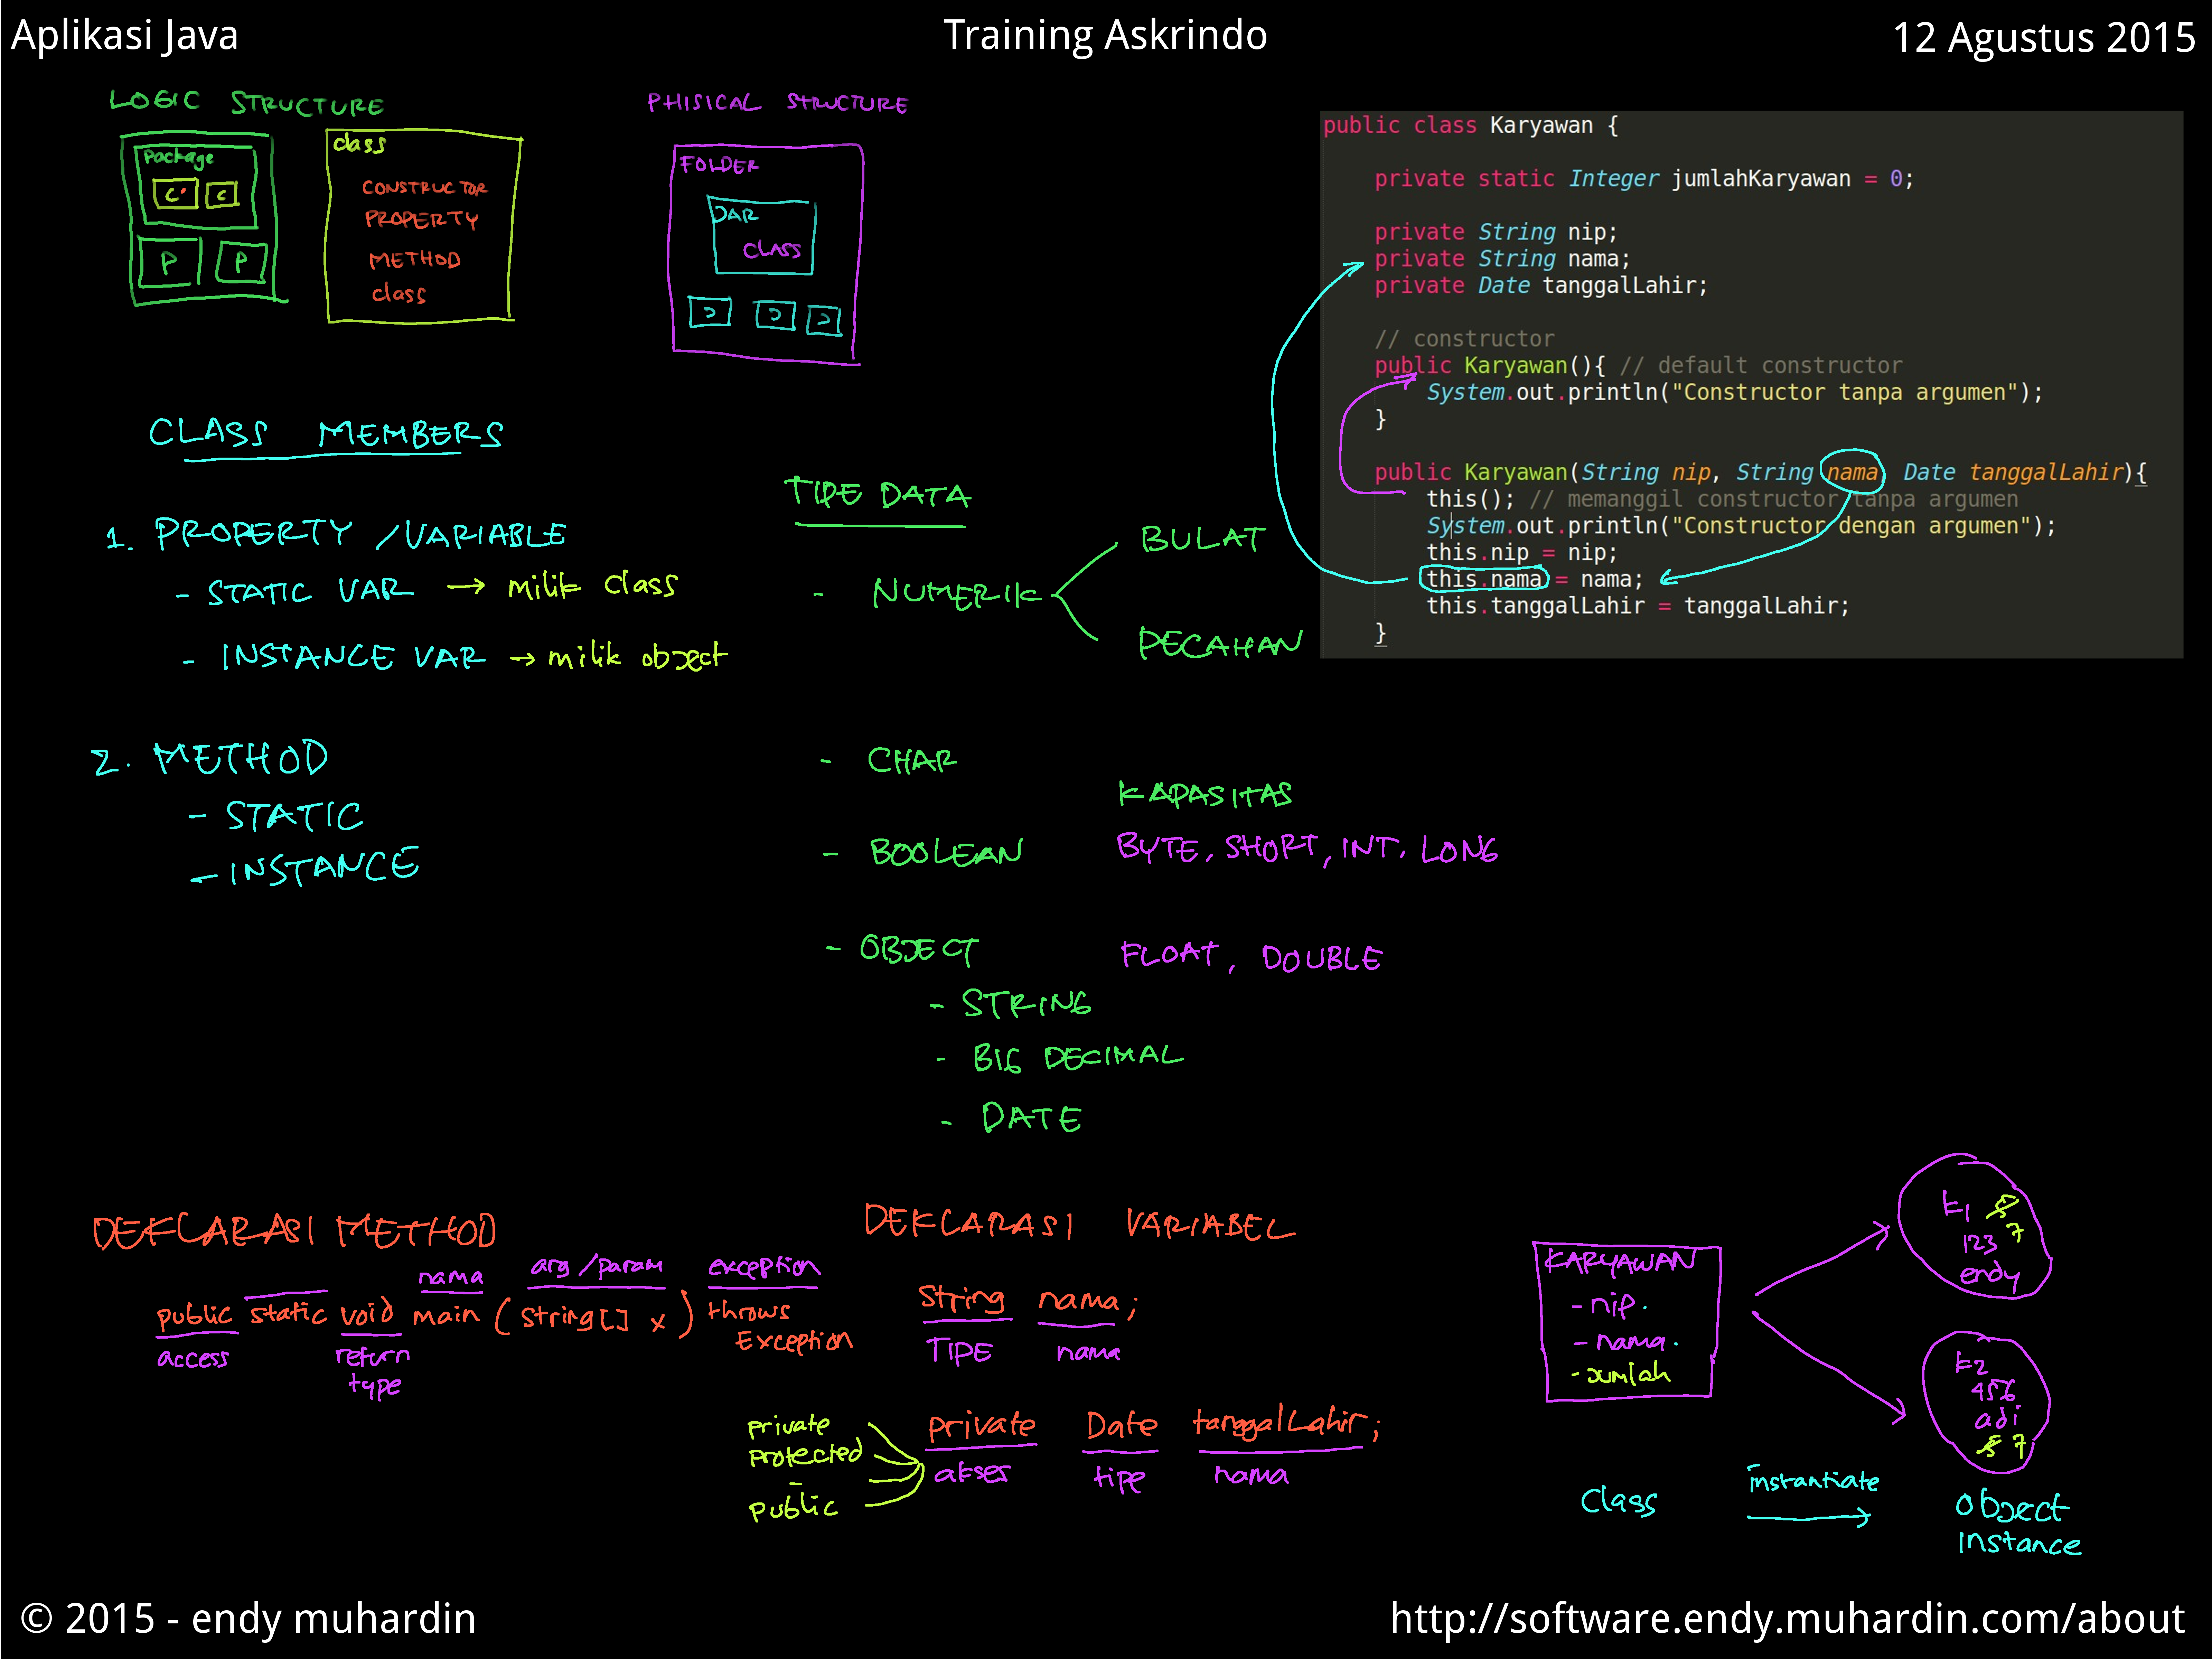 Aplikasi Java
Training Askrindo
12 Agustus 2015
LOGIC STRUCTURE
Package
C C
P P
class
CONSTRUCTOR
PROPERTY
METHOD
class
PHISICAL STRUCTURE
FOLDER
JAR
CLASS
J J J
public class Karyawan {
private static Integer jumlahKaryawan = 0;
private String nip;
private String nama;
private Date tanggalLahir;
// constructor
public Karyawan(){ // default constructor
System.out.println("Constructor tanpa argumen");
}
public Karyawan(String nip, String nama Date tanggalLahir){
this(); // memanggil constructor tanpa argumen
System.out.println("Constructor dengan argumen");
this.nip = nip;
this.nama = nama;
this.tanggalLahir = tanggalLahir;
}
CLASS MEMBERS
1. PROPERTY /VARIABLE
- STATIC VAR → milik class
- INSTANCE VAR → milik object
2. METHOD
- STATIC
- INSTANCE
TIPE DATA
- NUMERIK
BULAT
PECAHAN
- CHAR
- BOOLEAN
- OBJECT
- STRING
- BIG DECIMAL
- DATE
KAPASITAS
BYTE, SHORT, INT, LONG
FLOAT, DOUBLE
DEKLARASI METHOD
nama arg/param exception
public static void main (String[] x) throws
Exception
access return
type
DEKLARASI VARIABEL
String nama;
TIPE nama
private
protected
-
public
private Date tanggalLahir;
akses tipe nama
KARYAWAN
- nip
- nama
- jumlah
k1 5
7
123
endy
k2
456
adi
5 7
class
instantiate
object
instance
© 2015 - endy muhardin
http://software.endy.muhardin.com/about